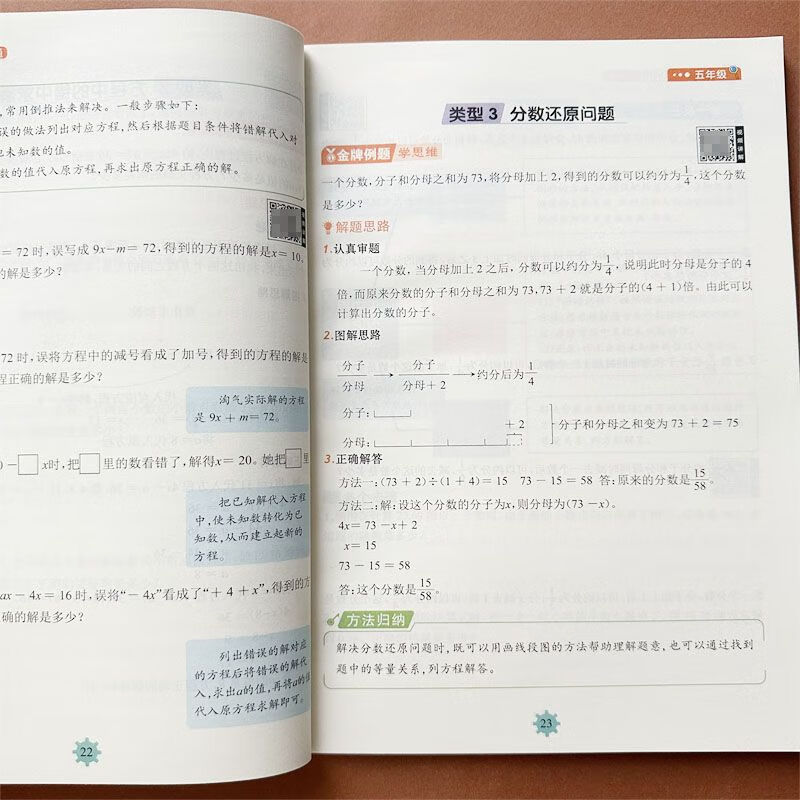 常用倒推法来解决。一般步骤如下:
误的做法列出对应方程,然后根据题目条件将错解代入对
未知数的值。
数的值代入原方程,再求出原方程正确的解。
=72时,误写成9x-m=72,得到的方程的解是x=10。
的解是多少?
72时,误将方程中的减号看成了加号,得到的方程的解是
程正确的解是多少?
淘气实际解的方程
是9x+m=72。
)-□x时,把□里的数看错了,解得x=20。她把□里
把已知解代入方程
中,使未知数转化为已
知数,从而建立起新的
方程。
ax-4x=16时,误将“-4x”看成了“+4+x”,得到的方
确的解是多少?
列出错误的解对应
的方程后将错误的解代
入,求出a的值,再将a的值
代入原方程求解即可。
22
五年级
类型3 分数还原问题
视频讲解
金牌例题 学思维
一个分数,分子和分母之和为73,将分母加上2,得到的分数可以约分为1/4,这个分数
是多少?
解题思路
1.认真审题
一个分数,当分母加上2之后,分数可以约分为1/4,说明此时分母是分子的4
倍,而原来分数的分子和分母之和为73,73+2就是分子的(4+1)倍。由此可以
计算出分数的分子。
2.图解思路
分子/分母→分子/分母+2→约分后为1/4
分子:
+2
分子和分母之和变为73+2=75
分母:
3.正确解答
方法一:(73+2)÷(1+4)=15 73-15=58 答:原来的分数是15/58。
方法二:解:设这个分数的分子为x,则分母为(73-x)。
4x=73-x+2
x=15
73-15=58
答:这个分数是15/58。
方法归纳
解决分数还原问题时,既可以用画线段图的方法帮助理解题意,也可以通过找到
题中的等量关系,列方程解答。
23